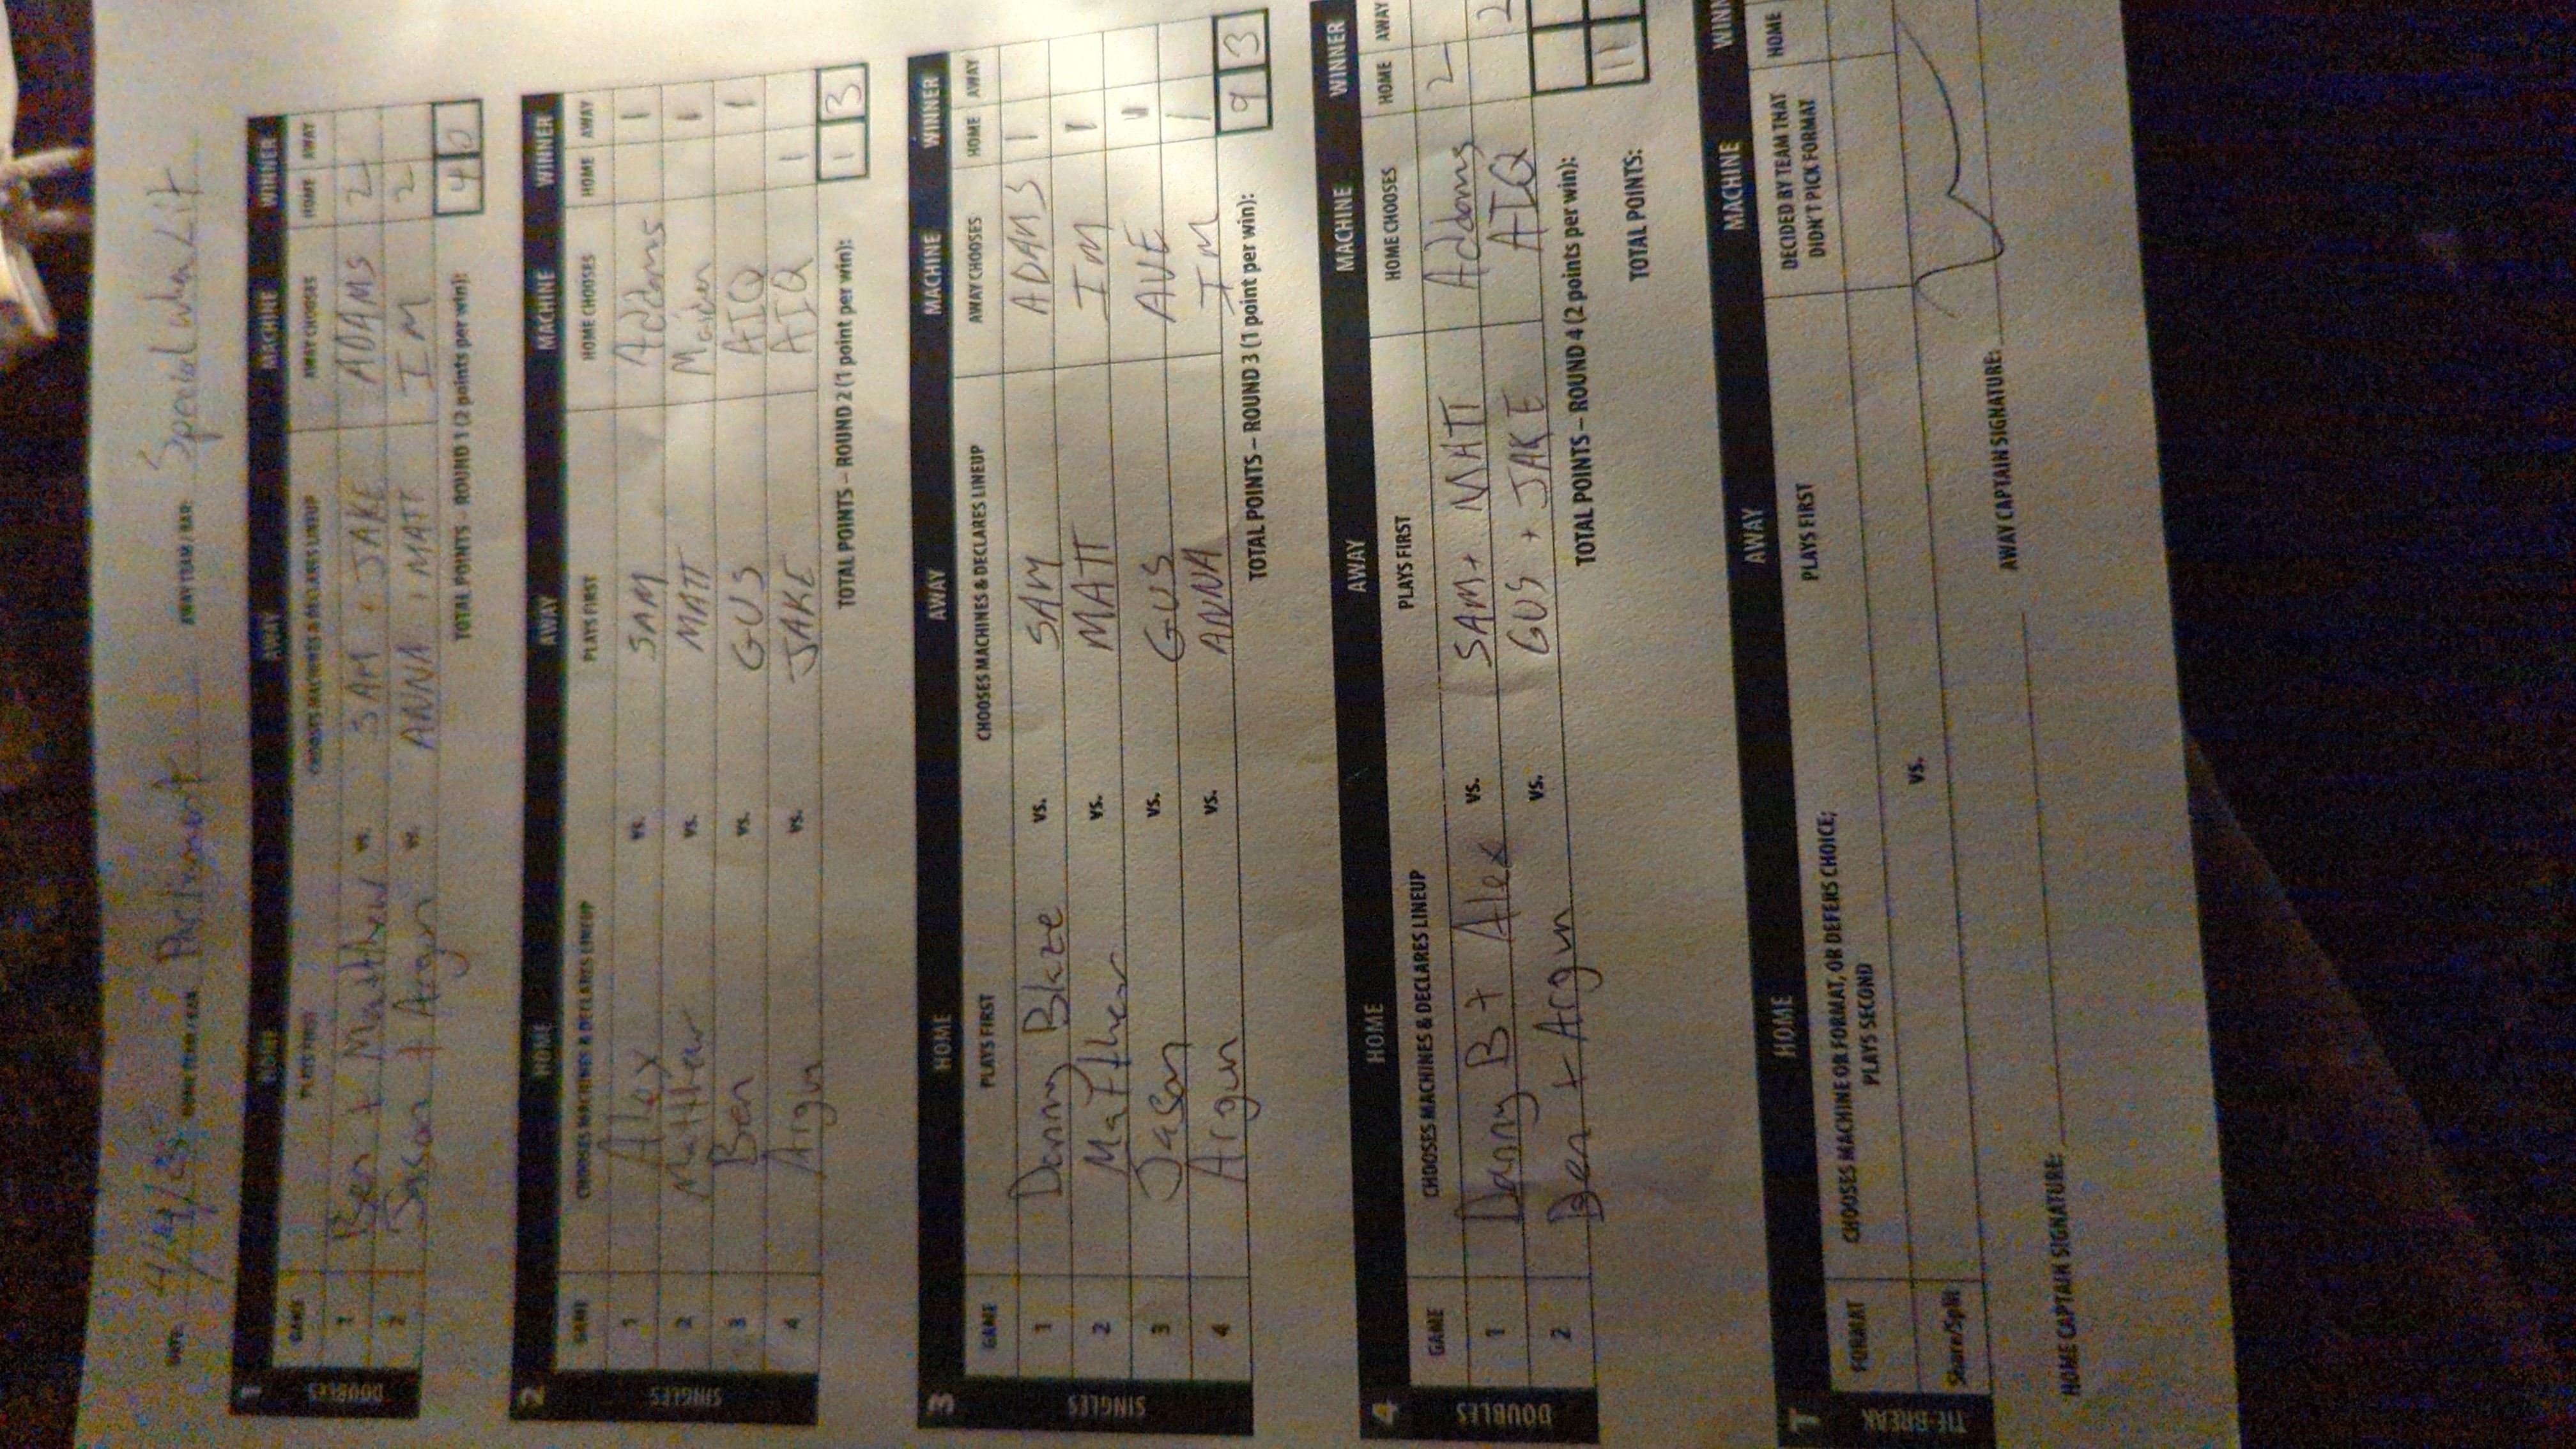 DATE: 4/24/25 HOME TEAM / BAR: Parliament AWAY TEAM / BAR: Special When Lit
1 HOME AWAY MACHINE WINNER
DOUBLES
GAME PLAYS FIRST CHOOSES MACHINES & DECLARES LINEUP AWAY CHOOSES HOME AWAY
1 Ben + Matthew vs. SAM + JAKE ADAMS 2
2 Jason + Argun vs. ANNA + MATT IM 2
TOTAL POINTS – ROUND 1 (2 points per win): 4 0
2 HOME AWAY MACHINE WINNER
SINGLES
GAME CHOOSES MACHINES & DECLARES LINEUP PLAYS FIRST HOME CHOOSES HOME AWAY
1 Alex vs. SAM Addams 1
2 Matthew vs. MATT Maiden 1
3 Ben vs. GUS AIQ 1
4 Argun vs. JAKE AIQ 1
TOTAL POINTS – ROUND 2 (1 point per win): 1 3
3 HOME AWAY MACHINE WINNER
SINGLES
GAME PLAYS FIRST CHOOSES MACHINES & DECLARES LINEUP AWAY CHOOSES HOME AWAY
1 Danny Blaze vs. SAM ADAMS 1
2 Matthew vs. MATT IM 1
3 Jason vs. GUS AVE 1
4 Argun vs. ANNA IM 1
TOTAL POINTS – ROUND 3 (1 point per win): 9 3
4 HOME AWAY MACHINE WINNER
DOUBLES
GAME CHOOSES MACHINES & DECLARES LINEUP PLAYS FIRST HOME CHOOSES HOME AWAY
1 Danny B + Alex vs. SAM + MATT Addams 2
2 Ben + Argun vs. GUS + JAKE AIQ 2
TOTAL POINTS – ROUND 4 (2 points per win):
TOTAL POINTS: 11
T HOME AWAY MACHINE WINN
TIE-BREAK
FORMAT CHOOSES MACHINE OR FORMAT, OR DEFERS CHOICE; PLAYS SECOND PLAYS FIRST DECIDED BY TEAM THAT DIDN'T PICK FORMAT HOME
Share/Split vs.
HOME CAPTAIN SIGNATURE: AWAY CAPTAIN SIGNATURE: